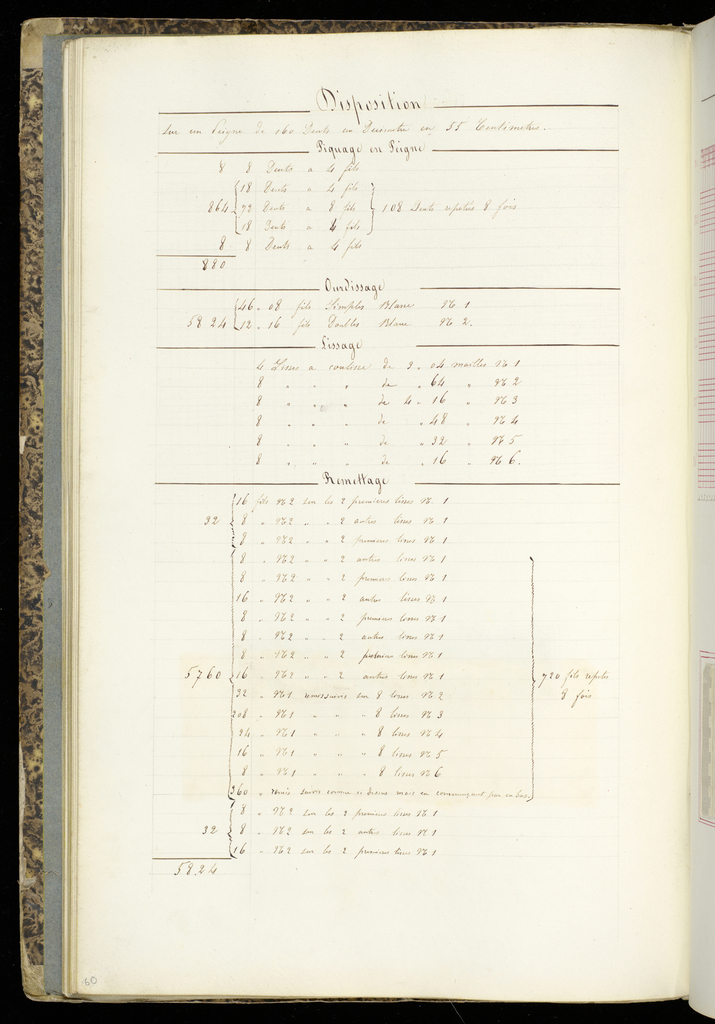 Disposition
Sur un Peigne de 160 Dents au Decimetre en 55 Centimetres.
Piquage en Peigne
8 8 Dents a 4 fils
18 Dents a 4 fils
864 72 Dents a 8 fils 108 Dents repetés 8 fois
18 Dents a 4 fils
8 8 Dents a 4 fils
880
Ourdissage
46 . 08 fils Simples Blanc № 1
58.24 12 . 16 fils Doubles Blanc № 2.
Lissage
4 Lisses a coulisse de 3 . 04 mailles № 1
8 " " " de " 64 " № 2
8 " " " de 4 . 16 " № 3
8 " " " de " 48 " № 4
8 " " " de " 32 " № 5
8 " " " de " 16 " № 6.
Remettage
16 fils № 2 sur les 2 premieres lisses № 1
32 8 " № 2 " " 2 autres lisses № 1
8 " № 2 " " 2 premieres lisses № 1
8 " № 2 " " 2 autres lisses № 1
8 " № 2 " " 2 premieres lisses № 1
16 " № 2 " " 2 autres lisses № 1
8 " № 2 " " 2 premieres lisses № 1
8 " № 2 " " 2 autres lisses № 1
8 " № 2 " " 2 premieres lisses № 1
5760 16 " № 2 " " 2 autres lisses № 1 720 fils repetés
32 " № 1 remis suivis sur 8 lisses № 2 8 fois
208 " № 1 " " " 8 lisses № 3
24 " № 1 " " " 8 lisses № 4
16 " № 1 " " " 8 lisses № 5
8 " № 1 " " " 8 lisses № 6
360 " remis suivis comme ci dessus mais en commençant par en bas.
8 " № 2 sur les 2 premieres lisses № 1
32 8 " № 2 sur les 2 autres lisses № 1
16 " № 2 sur les 2 premieres lisses № 1
58.24
60